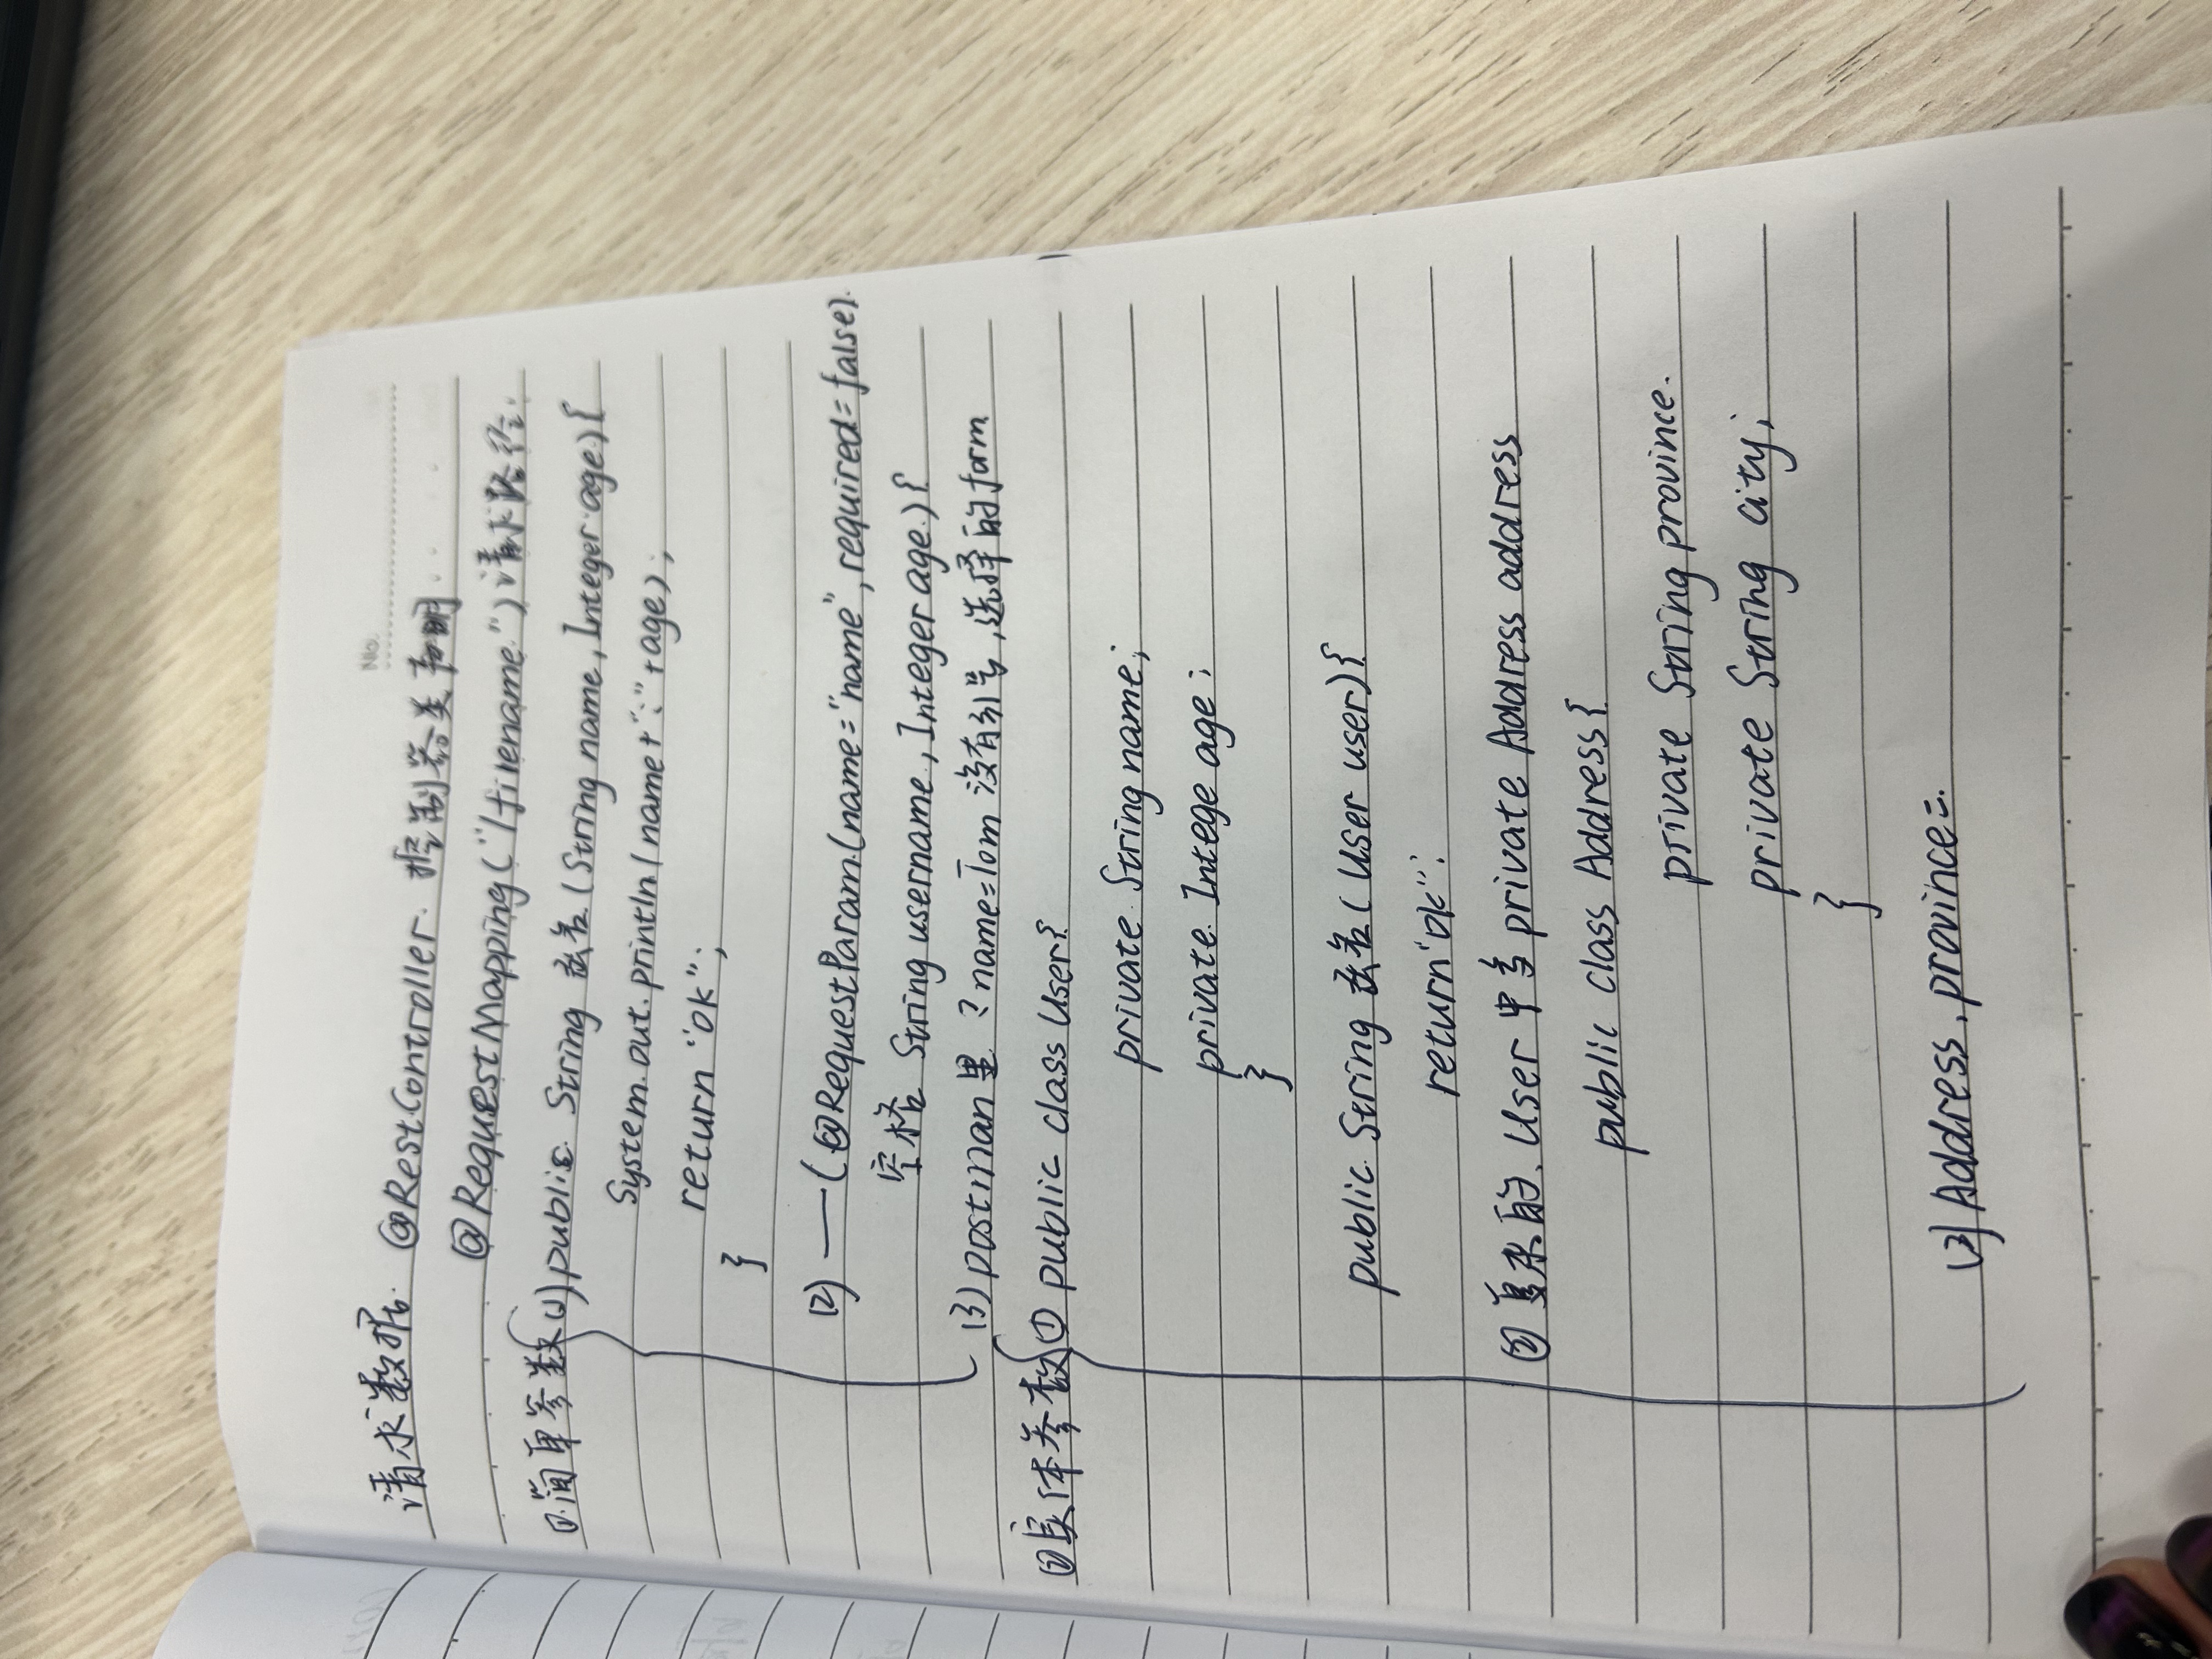 No.
请求数据. @RestController. 控制器类声明
@RequestMapping("/filename.") 请求路径.
①.简单参数 (1) public String 法名 (String name, Integer age) {
System.out.println(name+":"+age);
return "ok";
}
(2) —— (@RequestParam(name="name", required=false).
空格 String username, Integer age.) {
(3) postman里 ?name=Tom 没有引号,选择的form
②实体参数 ① public class User{
private String name;
private Intege age;
}
public String 法名 ( User user) {
return "ok";
② 复杂的. User 中多 private Address address
public class Address {
private String province.
private String city;
}
(3) Address.province=.